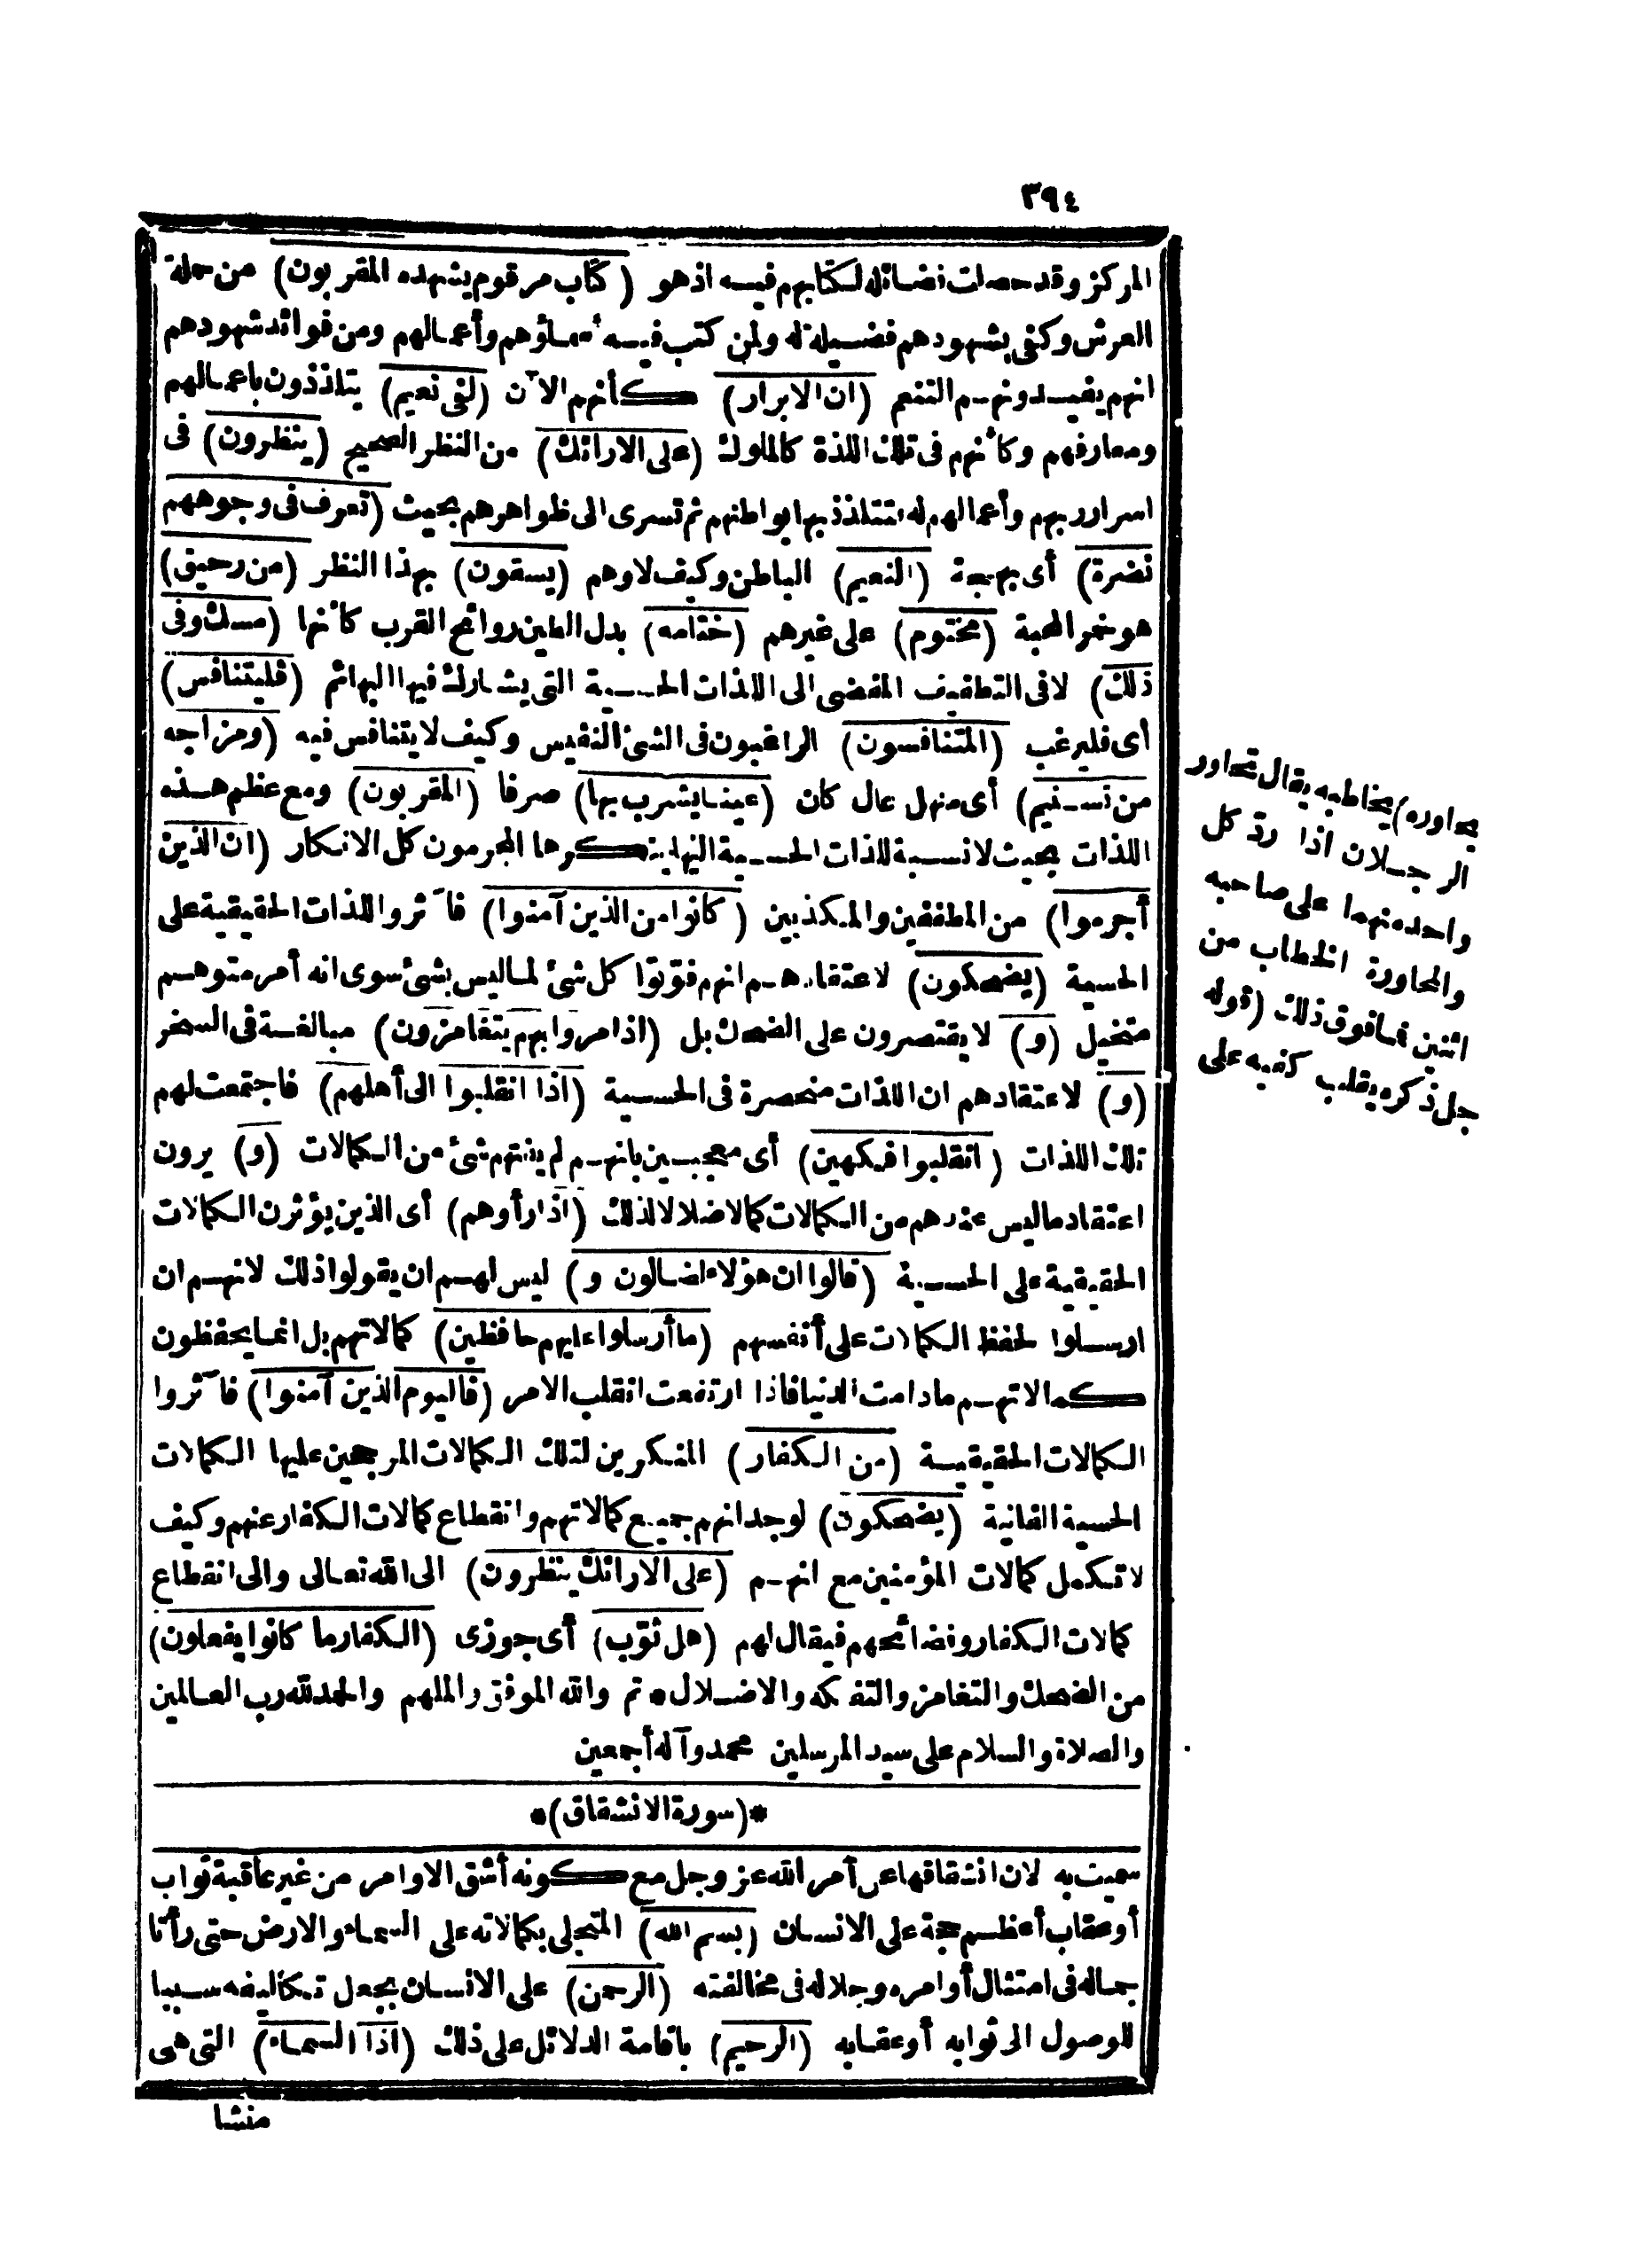 ٣٩٤
المركز وقد حصلت فضائله لكتابهم فيه اذ هو (كتاب مرقوم يشهده المقربون) من حملة
العرش وكفى بشهودهم فضيلة له ولمن كتب فيه أسماؤهم وأعمالهم ومن فوائد شهودهم
انهم يفيدونهم التنعم (ان الابرار) كأنهم الآن (لفى نعيم) يتلذذون باعمالهم
ومعارفهم وكأنهم فى تلك اللذة كالملوك (على الارائك) من النظر الصحيح (ينظرون) فى
اسرار ربهم وأعمالهم له فتتلذذ بها بواطنهم ثم تسرى الى ظواهرهم بحيث (تعرف فى وجوههم
نضرة) أى بهجة (النعيم) الباطن وكيف لا وهم (يسقون) بهذا النظر (من رحيق)
هو خمر المحبة (مختوم) على غيرهم (ختامه) بدل الطين روائح القرب كأنها (مسك وفى
ذلك) لا فى التطفيف المفضى الى اللذات الحسية التى يشارك فيها البهائم (فليتنافس)
أى فليرغب (المتنافسون) الراغبون فى الشئ النفيس وكيف لا يتنافس فيه (ومزاجه
من تسنيم) أى منهل عال كان (عينا يشرب بها) صرفا (المقربون) ومع عظم هذه
اللذات بحيث لا نسبة للذات الحسية اليها ينكرها المجرمون كل الانكار (ان الذين
أجرموا) من المطففين والمكذبين (كانوا من الذين آمنوا) فآثروا اللذات الحقيقية على
الحسية (يضحكون) لاعتقادهم انهم فوّتوا كل شئ لما ليس بشئ سوى انه أمر متوهم
متخيل (و) لا يقتصرون على الضحك بل (اذا مروا بهم يتغامزون) مبالغة فى السخر
(و) لاعتقادهم ان اللذات منحصرة فى الحسية (اذا انقلبوا الى أهلهم) فاجتمعت لهم
تلك اللذات (انقلبوا فكهين) أى معجبين بانهم لم يفتهم شئ من الكمالات (و) يرون
اعتقاد ما ليس عندهم من الكمالات كمالا ضلالا لذلك (اذا رأوهم) أى الذين يؤثرن الكمالات
الحقيقية على الحسية (قالوا ان هؤلاء لضالون و) ليس لهم ان يقولوا ذلك لانهم ان
ارسلوا لحفظ الكمالات على أنفسهم (ما أرسلوا عليهم حافظين) كمالاتهم بل انما يحفظون
كمالاتهم مادامت الدنيا فاذا ارتفعت انقلب الامر (فاليوم الذين آمنوا) فآثروا
الكمالات الحقيقية (من الكفار) المنكرين لتلك الكمالات المرجحين عليها الكمالات
الحسية الفانية (يضحكون) لوجدانهم جميع كمالاتهم وانقطاع كمالات الكفار عنهم وكيف
لا تكمل كمالات المؤمنين مع انهم (على الارائك ينظرون) الى الله تعالى والى انقطاع
كمالات الكفار وفضائحهم فيقال لهم (هل ثوّب) أى جوزى (الكفار ما كانوا يفعلون)
من الضحك والتغامز والتفكه والاضلال * تم والله الموفق والملهم والحمد لله رب العالمين
والصلاة والسلام على سيد المرسلين محمد وآله أجمعين
*(سورة الانشقاق)*
سميت به لان انشقاقها عن أمر الله عز وجل مع كونه أشق الاوامر من غير عاقبة ثواب
أو عقاب أعظم حجة على الانسان (بسم الله) المتجلى بكمالاته على السماء والارض حتى رأتا
جماله فى امتثال أوامره وجلاله فى مخالفته (الرحمن) على الانسان بجعل تكاليفه سببا
للوصول الى ثوابه أو عقابه (الرحيم) باقامة الدلائل على ذلك (اذا السماء) التى هى
منشا
يحاوره) يخاطبه يقال تحاور
الرجلان اذا ردّ كل
واحد منهما على صاحبه
والمحاورة الخطاب من
اثنين فما فوق ذلك (قوله
جل ذكره يقلب كفيه على